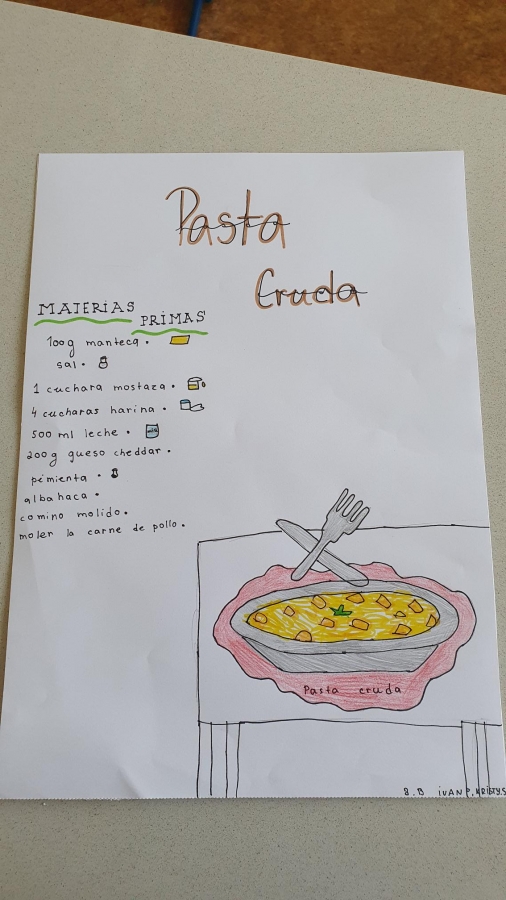 Pasta
Cruda
MATERIAS
PRIMAS
100g manteca.
sal.
1 cuchara mostaza.
4 cucharas harina.
500 ml leche.
200g queso cheddar.
pimienta.
albahaca.
comino molido.
moler la carne de pollo.
Pasta cruda
8.B IVAN P. KRISTY S